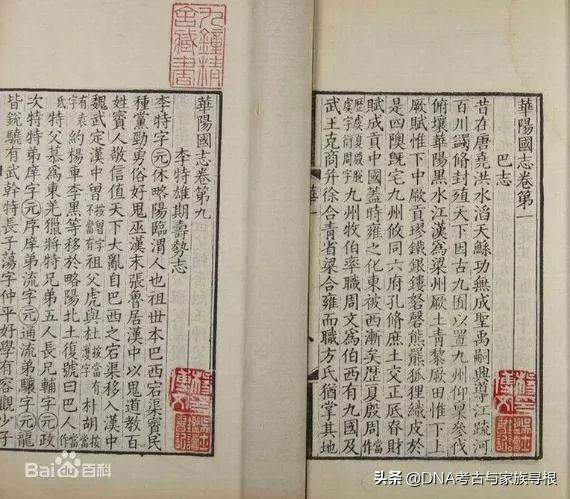 華陽國志卷第一
巴志
昔在唐堯洪水滔天鯀功無成聖禹嗣興導江疏河
百川蠲脩封殖天下因古九囿以置九州仰稟參伐
俯壤華陽黑水江漢為梁州厥土青黎厥田惟下上
厥賦惟下中厥貢璆鐵銀鏤砮磬熊羆狐狸織皮於
是四隩既宅九州攸同六府孔脩庶土交正底財
賦成貢中國蓋時雍之化東被西漸矣歷夏殷周
九州牧伯率職周文為伯西有九國及
武王克商并徐合青省梁合雍而職方氏猶掌其地
九鐘精舍藏書
華陽國志卷第九
李特雄期壽勢志
李特字元休略陽臨渭人也祖世本巴西宕渠賨民
種黨勁勇俗好鬼巫漢末張魯居漢中以鬼道教百
姓賨人敬信值天下大亂自巴西之宕渠移入漢中
魏武定漢中曾祖父虎與杜朴胡
約楊車李黑等移於略陽北土復號曰巴人
特父慕為東羌獵將特兄弟五人長兄輔字元政
次特特弟庠字元序庠弟流字元通流弟驤字元龍
皆銳驍有武幹特長子蕩字仲平好學有容觀少子
Baidu百科
头条 @DNA考古与家族寻根